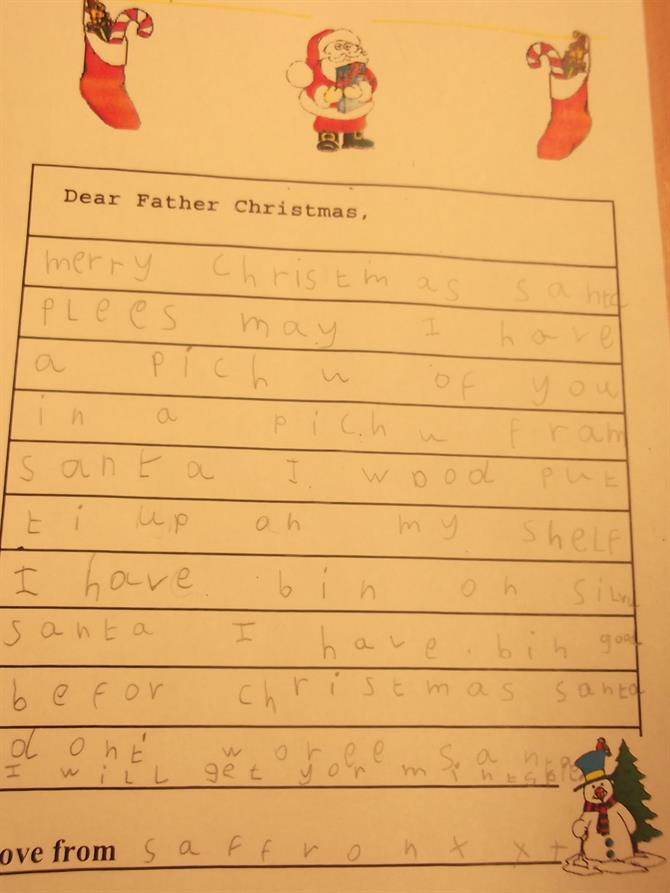 Dear Father Christmas,
merry Christmas santa
PLees may I have
a pichu of you
in a pichu fram
santa I wood put
ti up on my shelf
I have bin on
santa I have. bin good
befor christmas santa
dont woree Santa
I wiLL get yor
ove from saffron x x +